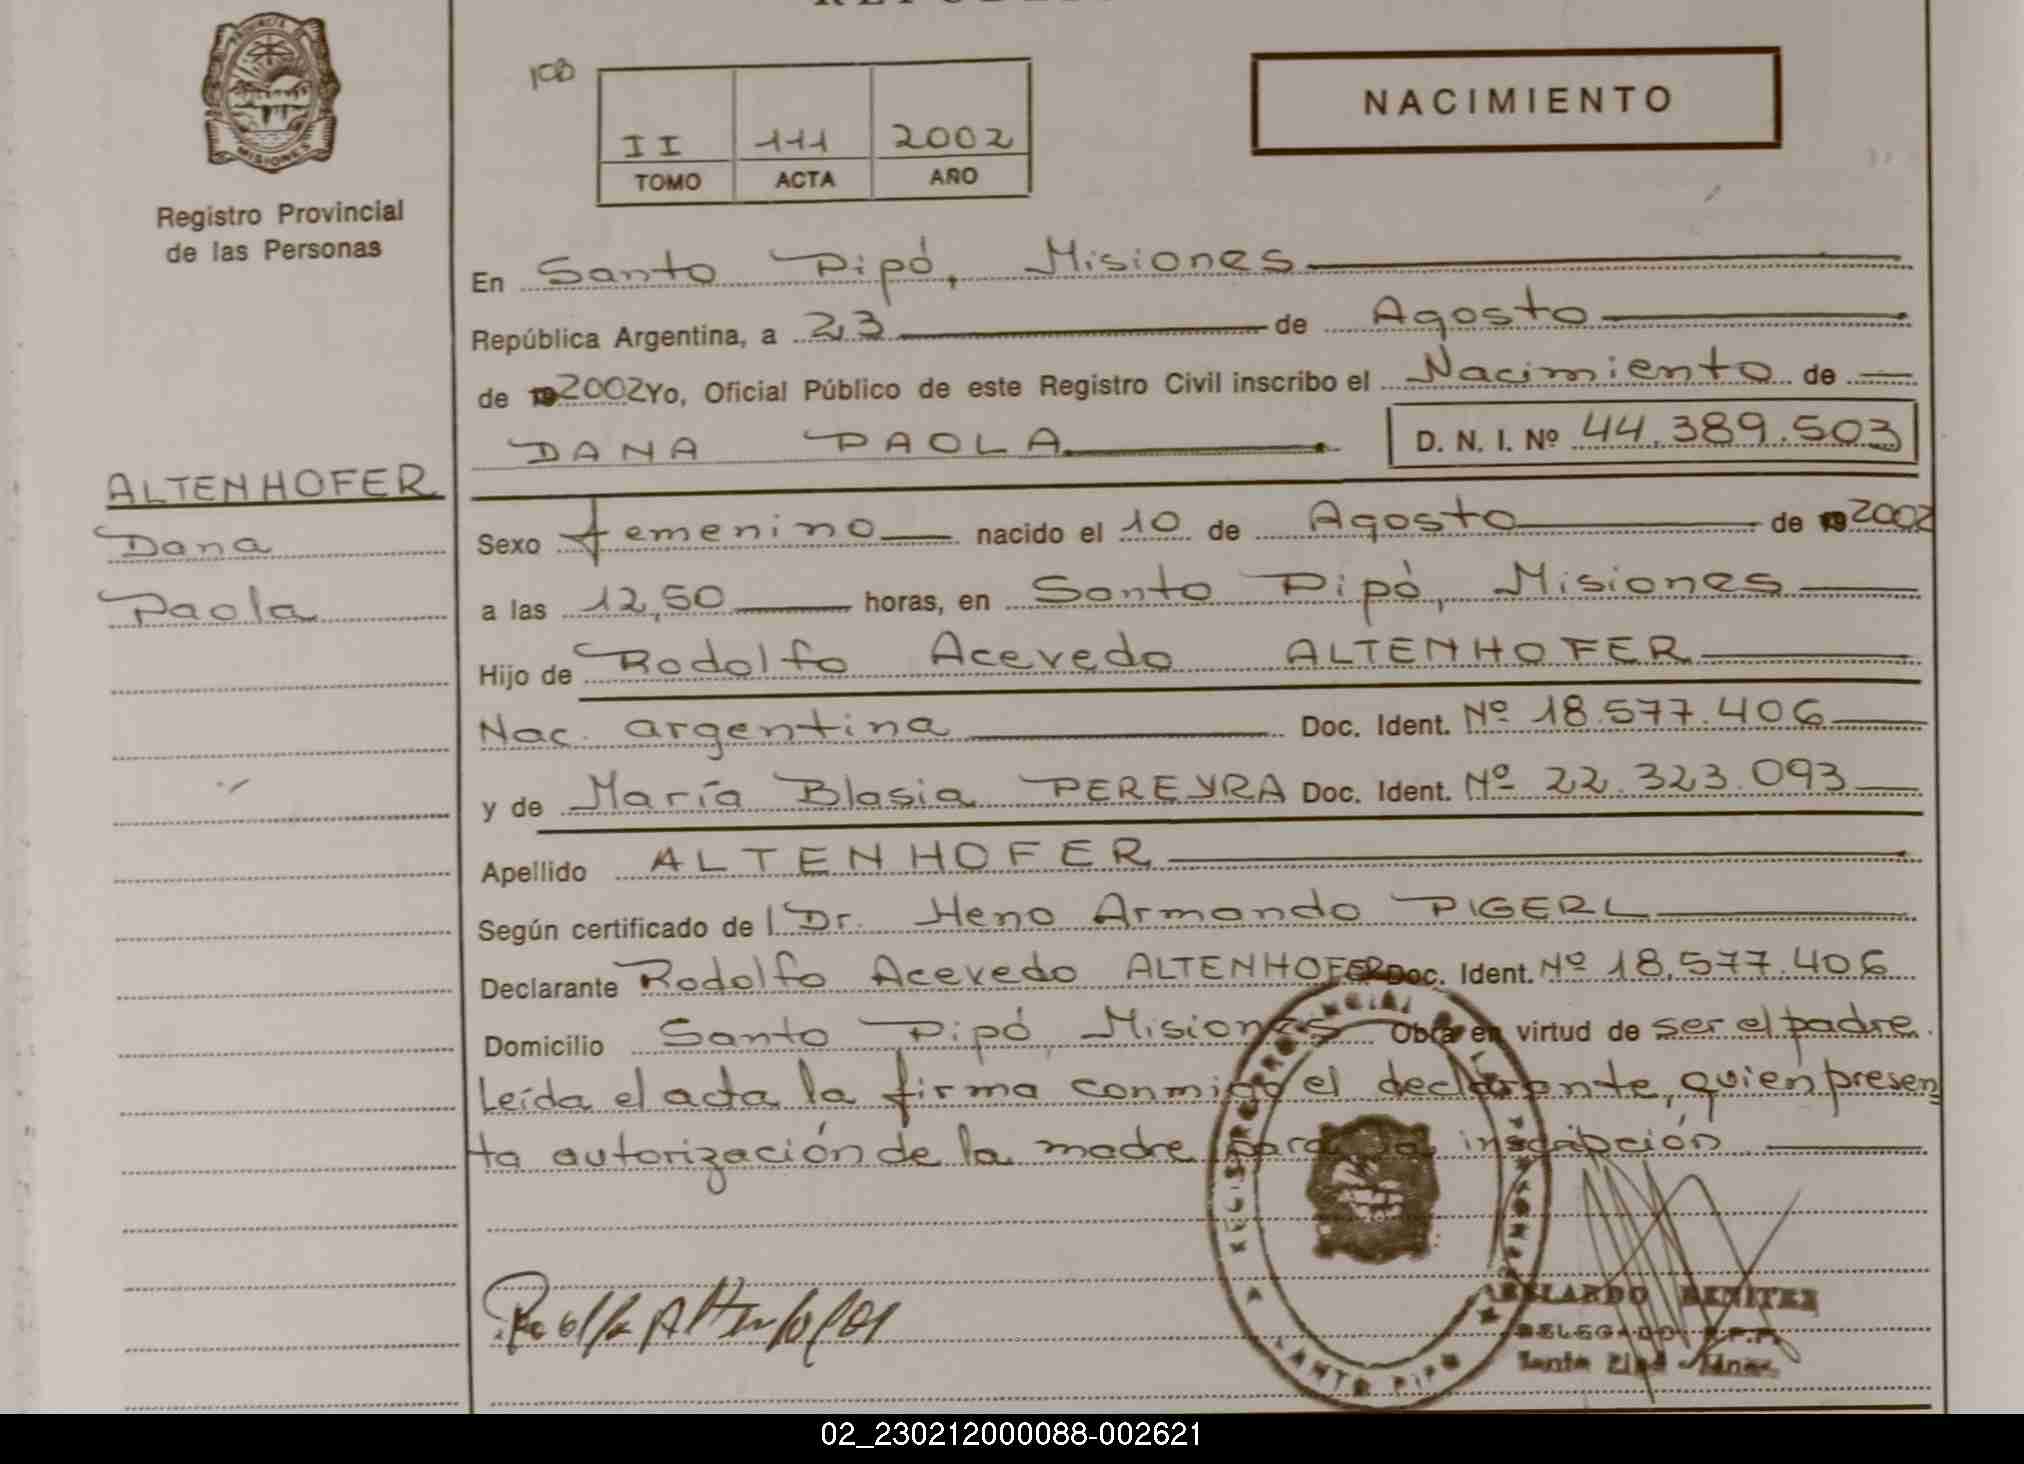 PROVINCIA DE
MISIONES
Registro Provincial
de las Personas
ALTENHOFER
Dana
Paola
II 111 2002
TOMO ACTA AÑO
NACIMIENTO
En Santo Pipó, Misiones
República Argentina, a 23 de Agosto
de 19 2002 Yo, Oficial Público de este Registro Civil inscribo el Nacimiento de
DANA PAOLA D. N. I. Nº 44.389.503
Sexo femenino nacido el 10 de Agosto de 19 2002
a las 12,50 horas, en Santo Pipó, Misiones
Hijo de Rodolfo Acevedo ALTENHOFER
Nac. argentina Doc. Ident. Nº 18.577.406
y de María Blasia PEREYRA Doc. Ident. Nº 22.323.093
Apellido ALTENHOFER
Según certificado de l Dr. Heno Armando PIGERL
Declarante Rodolfo Acevedo ALTENHOFER Doc. Ident. Nº 18.577.406
Domicilio Santo Pipó, Misiones Obra en virtud de ser el padre.
Leída el acta la firma conmigo el declarante, quien presen
ta autorización de la madre para la inscripción
Rodolfo Altenhofer
ABELARDO BENITEZ
DELEGADO R.P.P.
Santo Pipó - Mnes.
SANTO PIPO
02_230212000088-002621